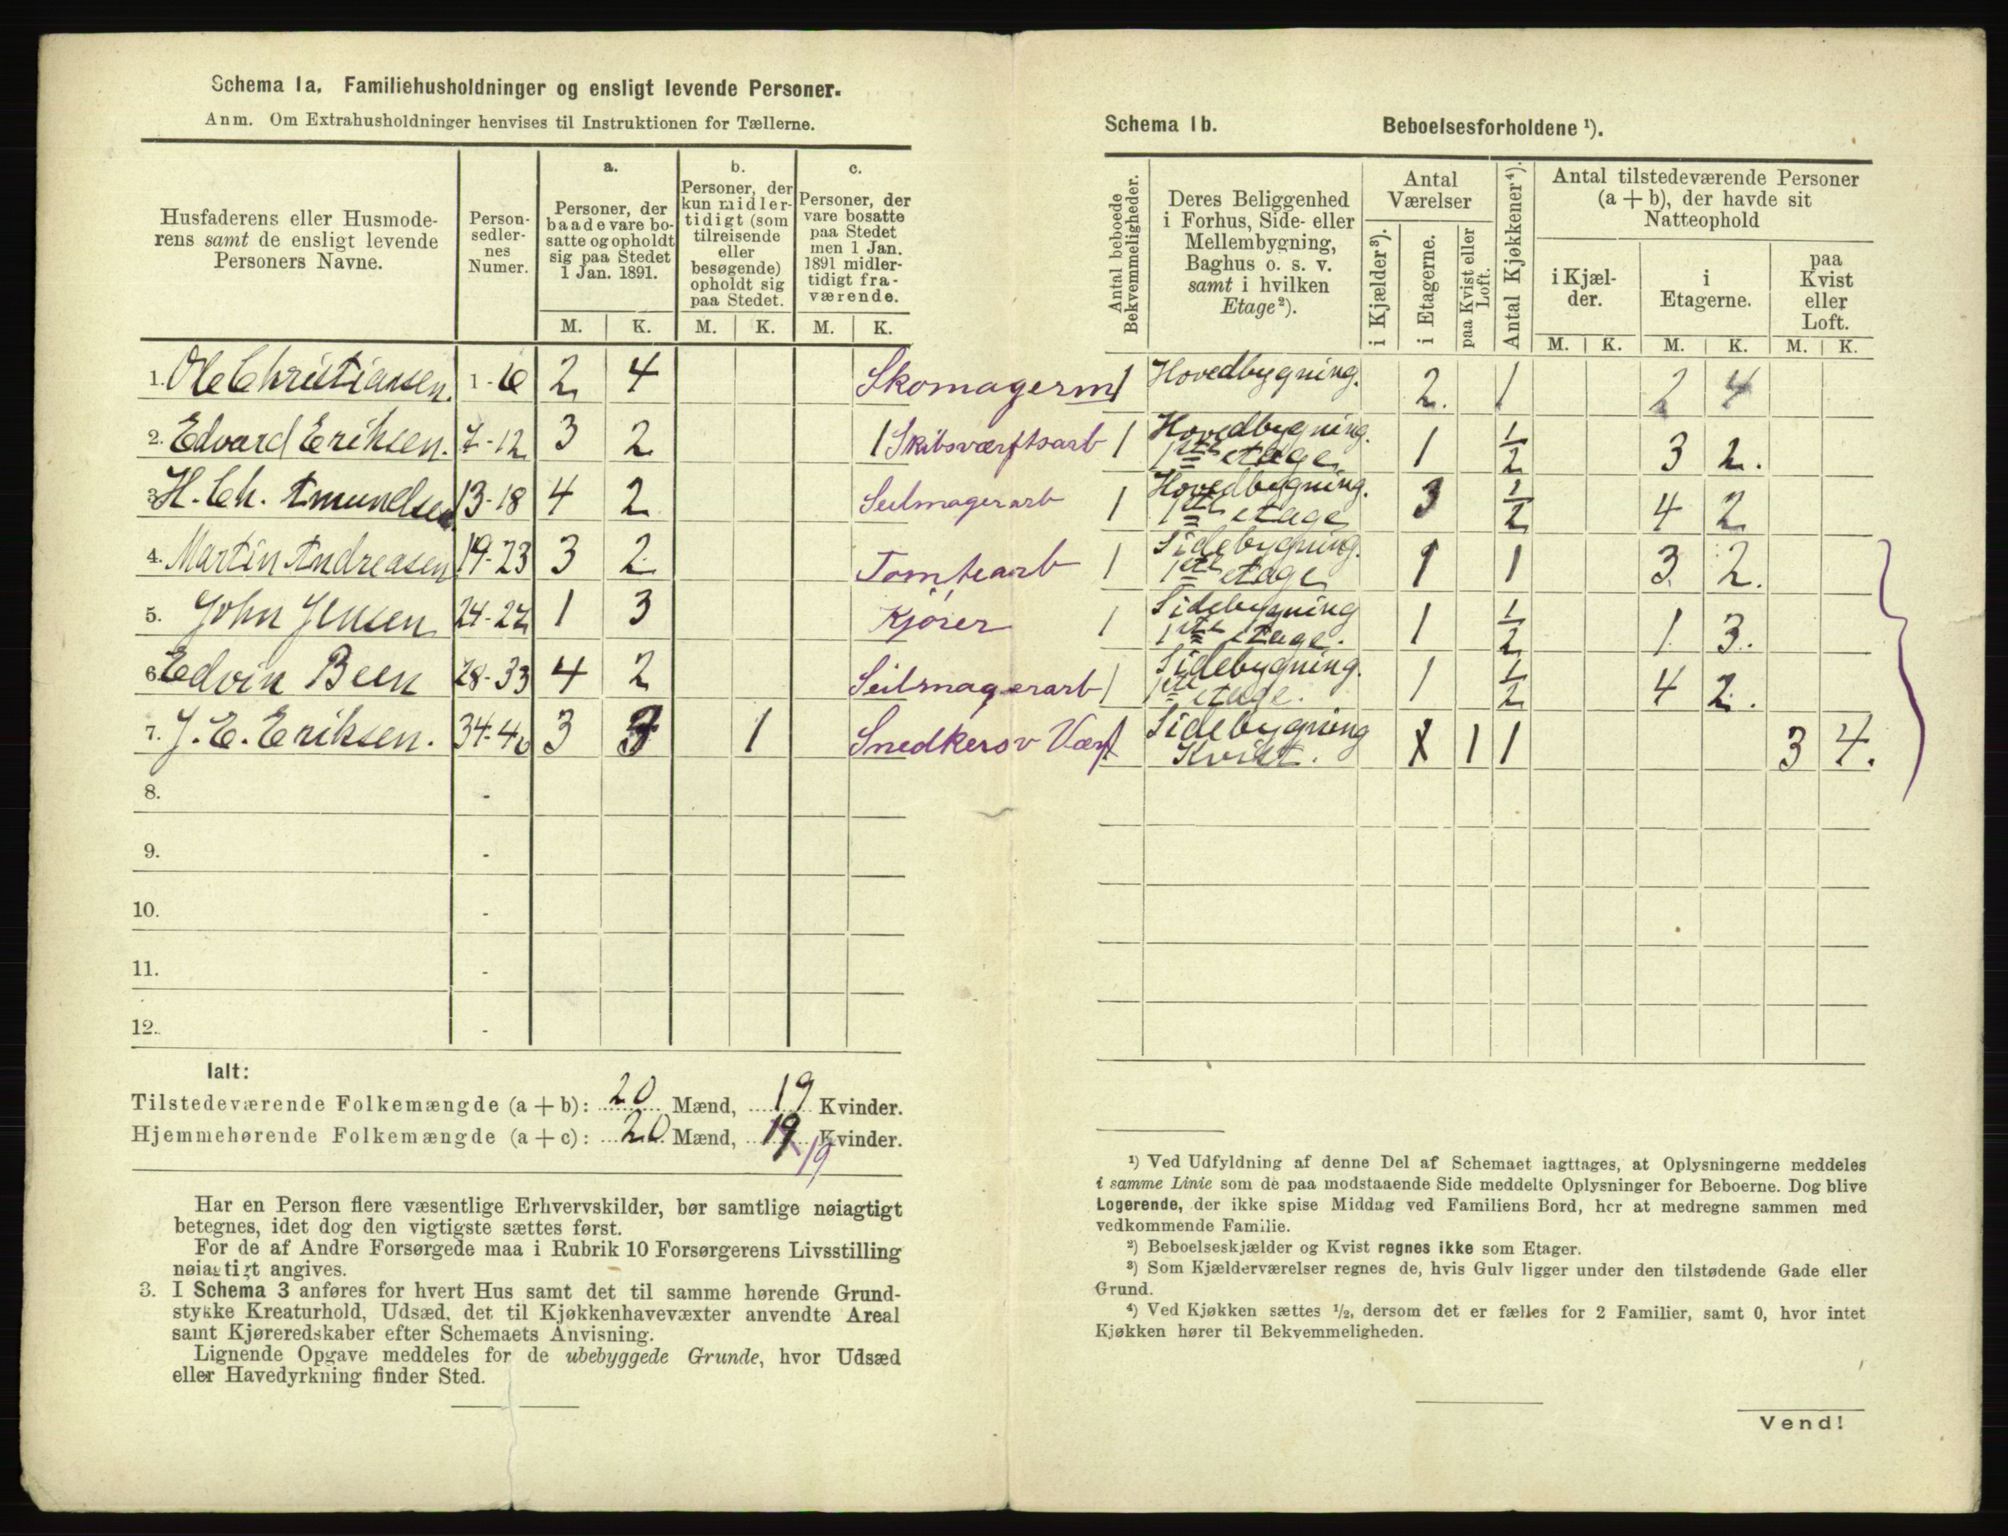 Schema 1a. Familiehusholdninger og ensligt levende Personer.
Anm. Om Extrahusholdninger henvises til Instruktionen for Tællerne.
Husfaderens eller Husmoderens samt de ensligt levende Personers Navne.
Personsedlernes Numer.
a.
Personer, der baade vare bosatte og opholdt sig paa Stedet 1 Jan. 1891.
b.
Personer, der kun midlertidigt (som tilreisende eller besøgende) opholdt sig paa Stedet.
c.
Personer, der vare bosatte paa Stedet men 1 Jan. 1891 midlertidigt fraværende.
M. K. M. K. M. K.
1. Ole Christiansen. 1-6 2 4 Skomagerm
2. Edvard Eriksen. 7-12 3 2 1 Skibsværftsarb
3. H. Ch. Amundsen 13-18 4 2 Seilmagerarb
4. Martin Andreasen 19-23 3 2 Tomtearb
5. John Jensen 24-27 1 3 Kjører
6. Edvin Been 28-33 4 2 Seilmagerarb
7. J. E. Eriksen. 34-40 3 3 1 Snedker ov Værft
8. -
9. -
10. -
11. -
12. -
Ialt:
Tilstedeværende Folkemængde (a + b): 20 Mænd, 19 Kvinder.
Hjemmehørende Folkemængde (a + c): 20 Mænd, 19 Kvinder.
19
Har en Person flere væsentlige Erhvervskilder, bør samtlige nøiagtigt
betegnes, idet dog den vigtigste sættes først.
For de af Andre Forsørgede maa i Rubrik 10 Forsørgerens Livsstilling
nøiagtigt angives.
3. I Schema 3 anføres for hvert Hus samt det til samme hørende Grund-
stykke Kreaturhold, Udsæd, det til Kjøkkenhavevæxter anvendte Areal
samt Kjøreredskaber efter Schemaets Anvisning.
Lignende Opgave meddeles for de ubebyggede Grunde, hvor Udsæd
eller Havedyrkning finder Sted.
Schema 1b. Beboelsesforholdene ¹).
Antal beboede Bekvemmeligheder.
Deres Beliggenhed i Forhus, Side- eller Mellembygning, Baghus o. s. v. samt i hvilken Etage²).
Antal Værelser
i Kjælder³).
i Etagerne.
paa Kvist eller Loft.
Antal Kjøkkener⁴).
Antal tilstedeværende Personer (a + b), der havde sit Natteophold
i Kjælder.
i Etagerne.
paa Kvist eller Loft.
M. K. M. K. M. K.
1 Hovedbygning. 2. 1 2 4
1 Hovedbygning. 1ste etage 1 1/2 3 2.
1 Hovedbygning. 1ste etage 3 1/2 4 2
1 Sidebygning. 1ste etage 1 1 3. 2.
1 Sidebygning 1ste etage. 1 1/2 1 3.
1 Sidebygning. 1ste etage. 1 1/2 4 2.
Sidebygning Kvist. 1 1 1 3 4.
¹) Ved Udfyldning af denne Del af Schemaet iagttages, at Oplysningerne meddeles
i samme Linie som de paa modstaaende Side meddelte Oplysninger for Beboerne. Dog blive
Logerende, der ikke spise Middag ved Familiens Bord, her at medregne sammen med
vedkommende Familie.
²) Beboelseskjælder og Kvist regnes ikke som Etager.
³) Som Kjælderværelser regnes de, hvis Gulv ligger under den tilstødende Gade eller
Grund.
⁴) Ved Kjøkken sættes ½, dersom det er fælles for 2 Familier, samt 0, hvor intet
Kjøkken hører til Bekvemmeligheden.
Vend!